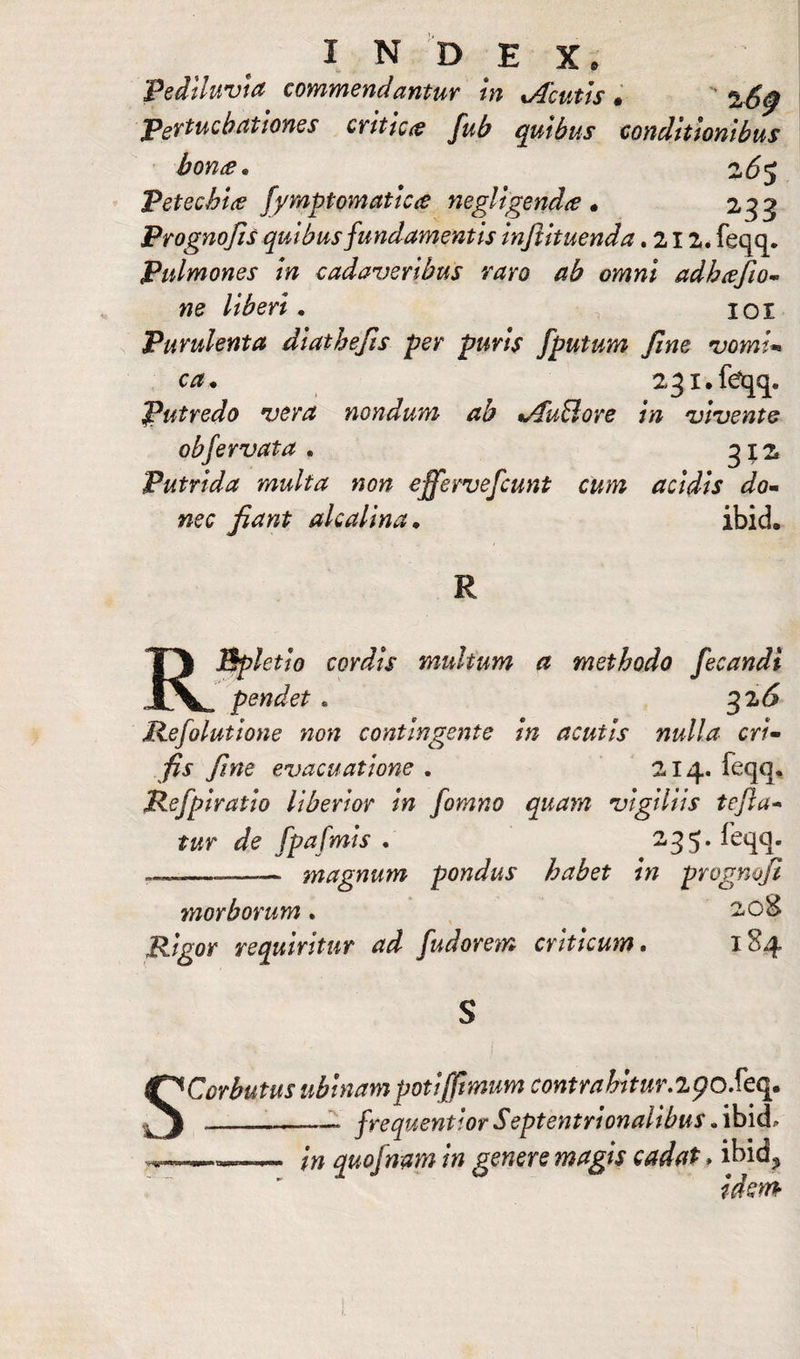 INDEX.
Pediluvia commendantur in Acutis. 269
Pertucbationes criticæ ſub quibus conditionibus
bonæ. 265
Petechiæ ſymptomaticæ negligendæ. 233
Prognoſis quibus fundamentis inſtituenda. 212. ſeqq.
Pulmones in cadaveribus raro ab omni adhæſio-
ne liberi. 101
Purulenta diatheſis per puris ſputum ſine vomi-
ca. 231. ſeqq.
Putredo vera nondum ab Auctore in vivente
obſervata. 312
Putrida multa non efferveſcunt cum acidis do-
nec fiant alcalina. ibid.
R
REpletio cordis multum a methodo ſecandi
pendet. 326
Reſolutione non contingente in acutis nulla cri-
ſis ſine evacuatione. 214. ſeqq.
Reſpiratio liberior in ſomno quam vigiliis teſta-
tur de ſpaſmis. 235. ſeqq.
——— magnum pondus habet in prognoſi
morborum. 208
Rigor requiritur ad ſudorem criticum. 184
S
SCorbutus ubinam potiſſimum contrahitur. 290. ſeq.
——— frequentior Septentrionalibus. ibid.
——— in quoſnam in genere magis cadat, ibid,
idem